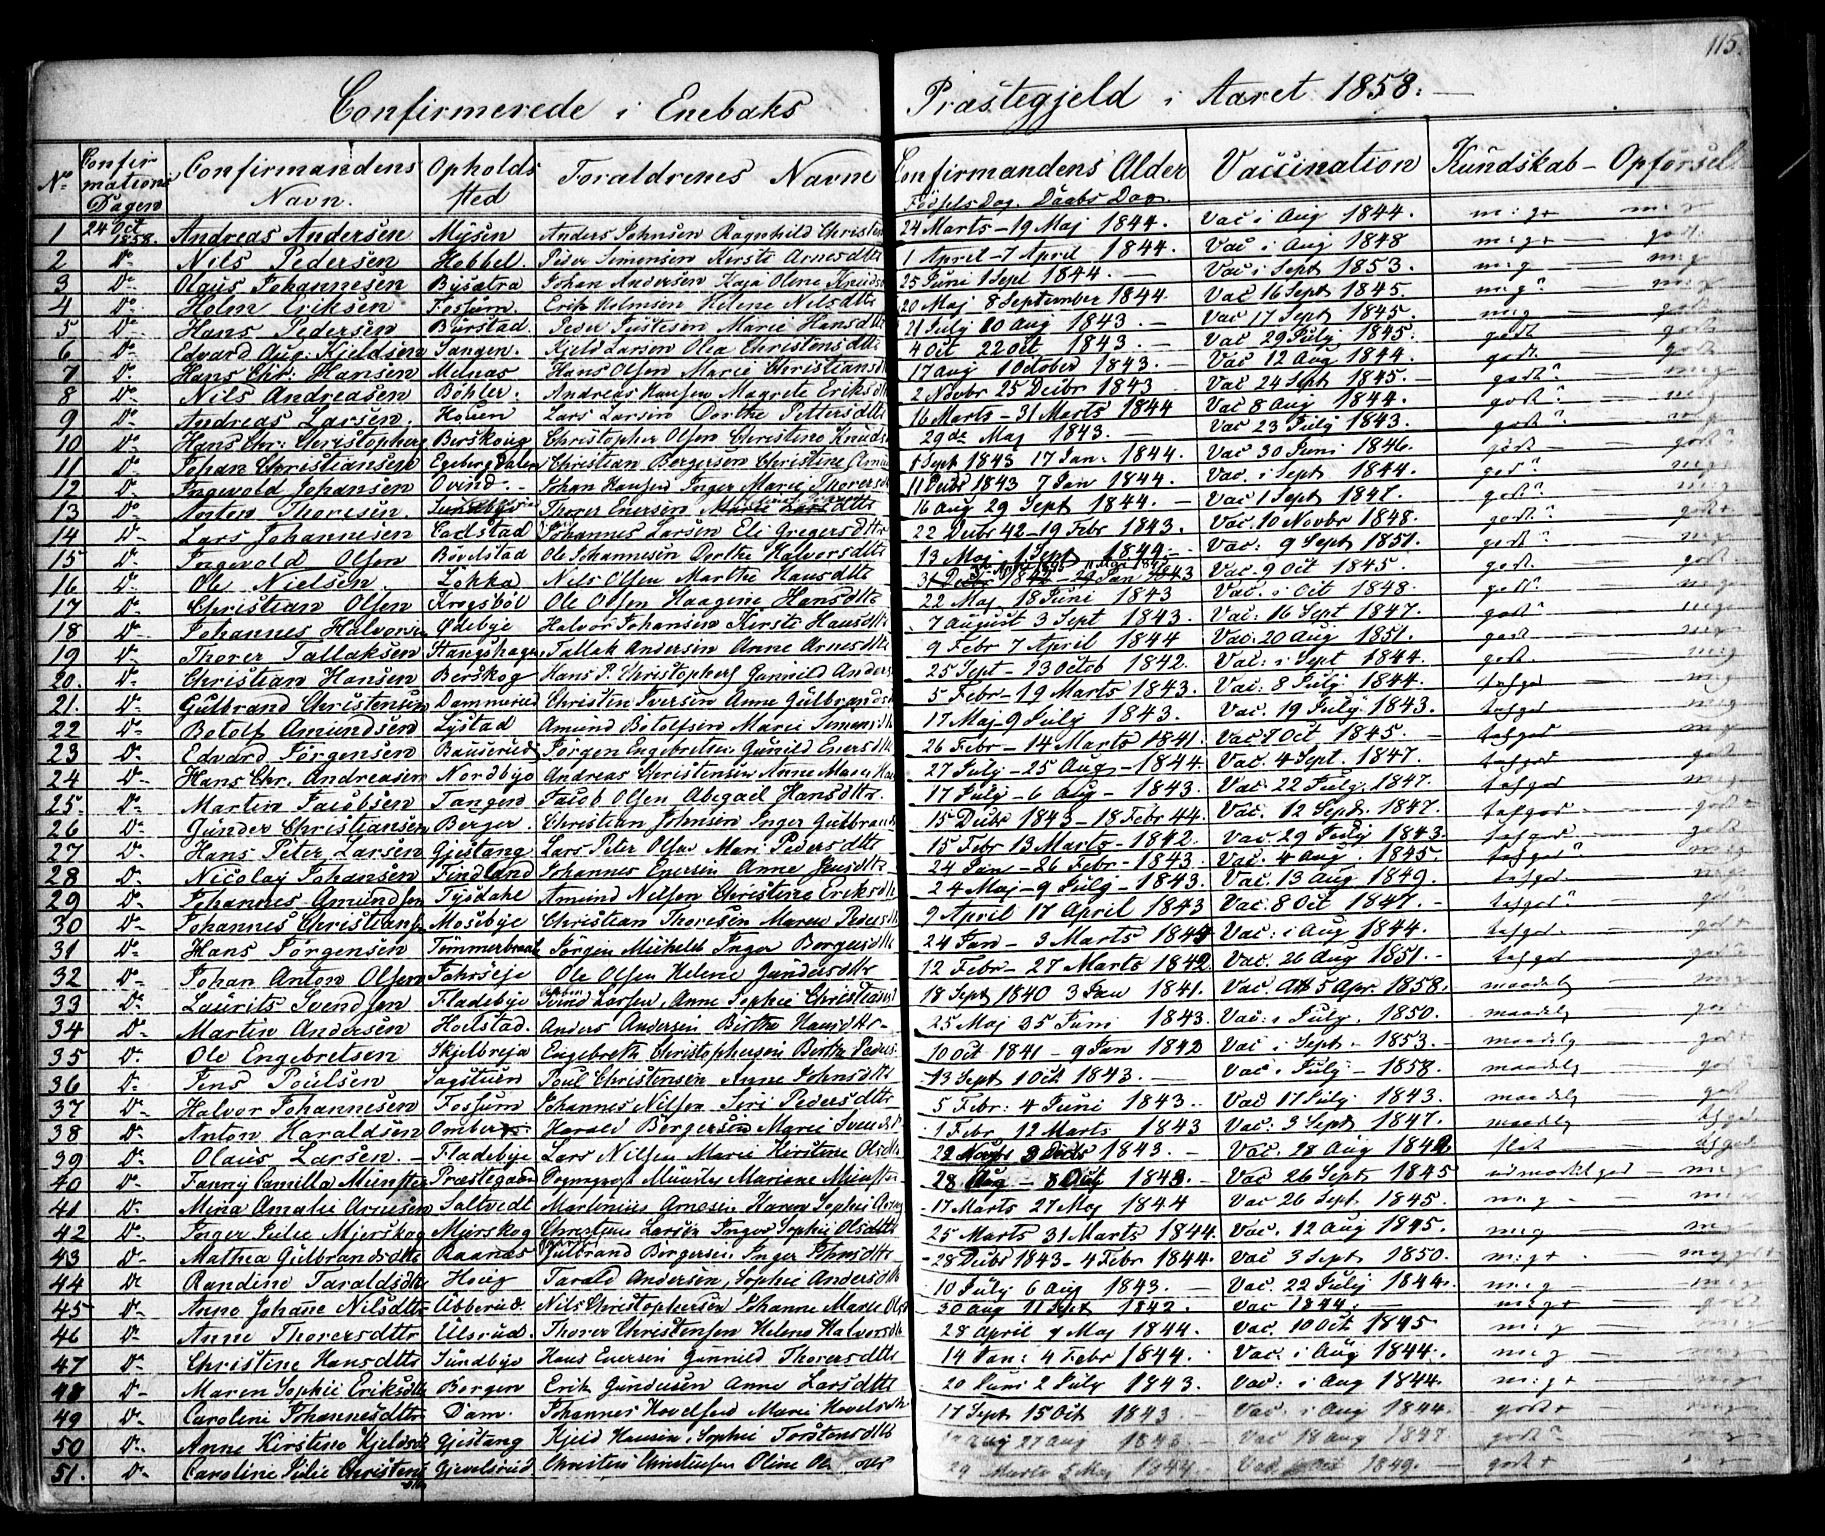 115.
Confirmerede i Enebaks Præstegjeld i Aaret 1858.
No Confirmations Dagen Confirmandens Navn. Opholds sted Foraldrenes Navne Confirmandens Alder Födsels Dag. Daabs Dag. Vaccination Kundskab - Opförsel
1 24 Oct 1858. Andreas Andersen Mysen Anders Johnsen Ragnhild Christen 24 Marts - 19 Maj 1844. Vac i Aug 1844. m:g+
2 Do Nils Pedersen Hobbel. Peder Simensen Kirsti Arnesdttr 1 April - 7 April 1844. Vac i Aug 1848 m:g+ godt
3 Do Olaus Johannesen Bysætra Johan Andersen Kaja Olene Knuds 25 Juni 1 Sept 1844. Vac i Sept 1853. m:g m:g
4 Do Holm Eriksen Fossum. Erik Holmsen Helene Nilsdttr 20 Maj 8 September 1844. Vac 16 Sept 1845. m:g m:g
5 Do Hans Pedersen Burstad. Peder Justesen Marie Hansdttr 21 July 20 Aug 1843. Vac 17 Sept 1845. m:g godt
6 Do Edvard Aug: Kjeldsen Tangen. Kjeld Larsen Olea Christensdttr 4 Oct 22 Oct 1843. Vac 29 July 1845. godt godt
7 Do Hans Chr: Hansen Melnæs Hans Olsen Marie Christiansd 17 Aug 1 October 1843. Vac 12 Aug 1844. godt godt
8 Do Nils Andreasen Böhler. Andreas Hansen Magrete Eriksdt 2 Novbr 25 Decbr 1843 Vac 24 Sept 1845. godt m:g
9 Do Andreas Larsen. Houen Lars Larsen Dorthe Pettersdtt 16 Marts - 31 Marts 1844 Vac 8 Aug 1844. godt m:g
10 Do Hans Chr: Christophers Berskoug Christopher Olsen Christine Knuds 29de Maj 1843. Vac 23 July 1843. godt m:g
11 Do Johan Christiansen Egeberg Dalen Christian Bergersen Christine Amu Sept 1843 17 Jan. 1844. Vac 30 Juni 1846. godt godt
12 Do Ingevold Johansen Ovind. Johan Hansen Inger Marie Thorersd 11 Decbr 1843 7 Jan 1844. Vac. i Sept 1844. god m:g
13 Do Morten Thoresen. Sundbye Thorer Enersen 16 Aug 29 Sept 1844. Vac 1 Sept 1847. godt m:g
14 Do Lars Johannesen Ladstad Johannes Larsen Eli Gregersdttr 22 Decbr 42 - 19 Febr 1843. Vac. 10 Novbr 1848. godt godt
15 Do Ingevold Olsen Bövelstad Ole Johannesen Dorthe Halvorsdttr 13 Maj 1 Sept 1849. Vac: 9 Sept 1851. godt m:g
16 Do Ole Nielsen Lökka Nils Olsen Marthe Hansdttr 31 Decbr 1842 - 29 Jan 1843 Vac. 9 Oct 1845. godt godt
17 Do Christian Olsen Krogsböl Ole Olsen Haagine Hansdttr 22 Maj 18 Juni 1843 Vac. i Oct 1848. godt m:g
18 Do Johannes Halvorsen Ødebye Halvor Johansen Kirsti Hansdttr 7 August 3 Sept 1843. Vac: 16 Sept 1847. godt m:g
19 Do Thorer Tallaksen Stangshagen Tallak Andersen Anne Arnesdttr 9 Febr 7 April 1844 Vac: 20 Aug 1851. godt m:g
20. Do Christian Hansen Berskog Hans P. Christophers Gunnild Anders 25 Sept - 23 Octob 1842. Vac: i Sept 1844. godt m:g
21. Do Gulbrand Christensen Dammerud Christen Iversen Anne Gulbrands 5 Febr - 19 Marts 1843. Vac: 8 July 1844. tafgod m:g
22 Do Botolf Amundsen Lystad Amund Botolfsen Marie Simensdt 17 Maj - 9 July 1843. Vac. 19 July 1843. tafgod m:g
23 Do Edvard Jörgensen Bauserud Jörgen Engebretsen Gunild Enersdttr 26 Febr - 14 Marts 1841. Vac 7 Oct 1845. tafgod m:g
24 Do Hans Chr. Andreasen Nordbye Andreas Christensen Anne Maria 27 July - 25 Aug - 1844. Vac. 4 Sept. 1847. tafgod godt
25. Do Martin Jacobsen Tangen Jacob Olsen Abigael Hansdttr. 17 July - 6 Aug - 1843. Vac. 22 July. 1847. tafgod m:g
26 Do Gunder Christiansen Berger. Christian Johnsen Inger Gulbrands 15 Decbr 1843 - 18 Febr 44. Vac. 12 Sept. 1847. tafgod godt
27 Do Hans Peter Larsen Gjestang Lars Peter Olsen Mari Pedersdttr 15 Febr 13 Marts - 1842. Vac. 29 July 1843. tafgod godt
28 Do Nicolay Johansen Findland Johannes Enersen Anne Jensdttr 24 Jan - 26 Febr - 1843. Vac. 4 Aug. 1845. tafgod m:g
29 Do Johannes Amundsen Tysdahl Amund Nilsen Christine Eriksdtt 24 Maj - 9 July - 1843. Vac. 13 Aug 1849. tafgod m:g
30 Do Johannes Christians Mosebye Christian Thoresen Maren Pedersdt 9 April 17 April 1843 Vac. 8 Oct 1847. tafgod god
31 Do Hans Jörgensen Tömmerbraate Jörgen Michels Inger Borgersdttr 24 Jan - 3 Marts 1844 Vac: i Aug 1844. tafgod god+
32 Do Johan Anton Olsen Jahrseje Ole Olsen Helene Gundersdttr 12 Febr - 27 Marts 1842. Vac. 26 Aug 1851. tafgod god
33 Do Laurits Svendsen Fladebye Svend Larsen, Anne Sophie Christiansd 18 Sept 1840 3 Jan 1841. Vac. Att 5 Apr. 1858. maadelg m:g
34 Do Martin Andersen Hoelstad. Anders Andersen Birthe Hansdttr 25 Maj 25 Juni 1843. Vac: i July. 1850. maadelg god
35 Do Ole Engebretsen Skjelbreja Engebreth Christophersen Berthe Peders 10 Oct 1841 - 9 Jan 1842 Vac i Sept 1853. maadelg god
36 Do Jens Poulsen Sagstuen Poul Christensen Anne Johnsdttr 13 Sept 1 Oct 1843. Vac i July - 1858. maadelg god
37 Do Halvor Johannesen Fossum Johannes Nilsen Siri Pedersdttr 5 Febr: 4 Juni 1843. Vac 17 July 1843. maadelg god
38 Do Anton Haraldsen Omberg Harald Borgersen Marie Svendsd 1 Febr 12 Marts 1843 Vac: 3 Sept 1847. maadelg tafgod
39 Do Olaus Larsen. Fladebye Lars Nilsen Marie Kirstine Olsdtt 22 Novbr 3 Decbr 1843. Vac. 28 Aug 1842 slet tafgod
40 Do Fanny Camilla Münster Præstegaard Sogneprest Münster Mariane Münster 28 Aug - 8 Octb 1843. Vac 26 Sept 1845 udmærket god m:g
41 Do Mina Amalie Arnesen Saltvedt Martinius Arnesen Karen Sophie Arne 17 Marts 27 Maj 1844 Vac 26 Sept. 1845. m:g m:g
42 Do Inger Julie Mjerskog Mjerskog Christen Larsen Inger Sophie Olsdttr 25 Marts 31 Marts 1844. Vac. 12 Aug 1845. m:g m:g
43 Do Mathea Gulbrandsdttr Raanæs Gulbrand Borgersen Inger Johnsdttr 28 Decbr 1843 - 4 Febr 1844. Vac 3 Sept 1850. m:g+
44 Do Randine Taraldsdttr Houg Tarald Andersen, Sophie Andersdtt 10 July 6 Aug 1843. Vac. 22 July 1844. m:g m:g
45 Do Anne Johane Nilsdttr Ubberud. Nils Christophersen Johanne Marie Ols 30 Aug 11 Sept 1842. Vac 1844. m:g+ godt
46 Do Anne Thorersdttr Ulsrud. Thorer Christensen Helene Halvorsdtt 28 April 7 Maj 1844. Vac. 10 Oct 1845 m:g m:g
47 Do Christine Hansdttr Sundbye Hans Enersen Gunnild Thorersdttr 14 Jan: 4 Febr 1844. Vac: i Aug 1844. m:g m:g
48 Do Maren Sophie Eriksdttr Bergen Erik Gundersen Anne Larsdttr 20 Juni 2 July 1843. Vac: i Aug 1844. m:g+ m:g
49 Do Caroline Johannesdttr Dam. Johannes Hovelsen Marie Hovelsd 17 Sept 15 Oct 1843. Vac. i Aug 1844. godt+
50 Do Anne Kirstine Kjeldsd Gjestang Kjeld Hansen, Sophie Torstensdttr Aug 27 Aug 1843. Vac 18 Aug 1847 godt
51. Do Caroline Julie Christensdtr Gjevelsrud Christen Christensen Oline 29 Marts 5 Maj 1844 Vac 1849. godt+